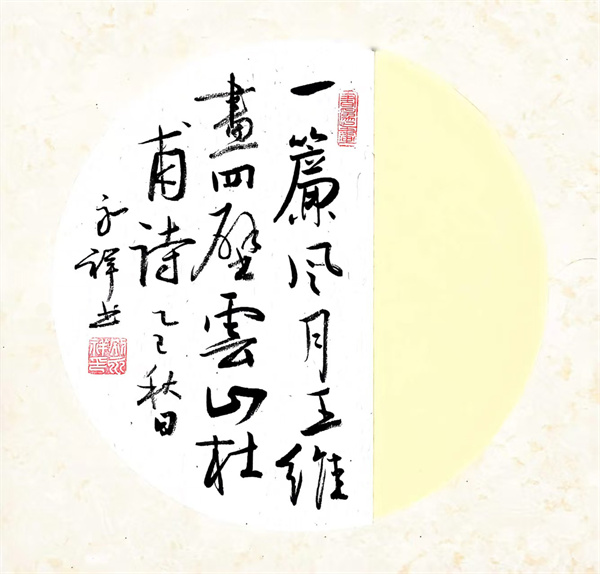 一簾风月王維
畫四壁雲山杜
甫詩 乙巳秋日
永祥书